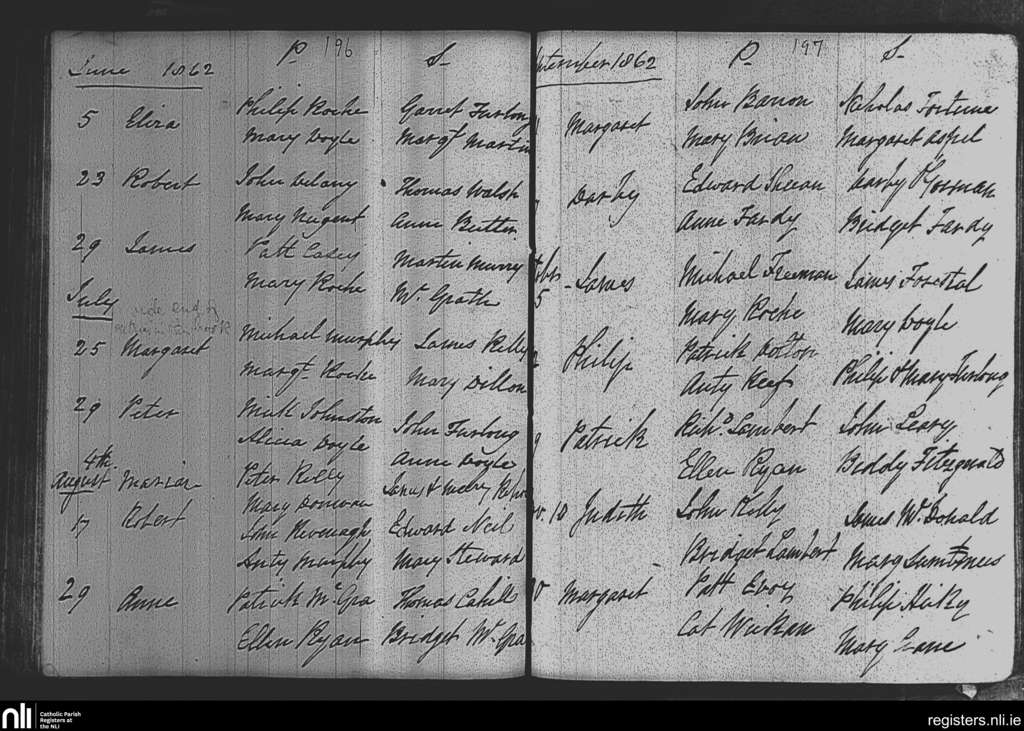 196
June 1862 P. S.
5 Eliza Philip Roche Garret Furlong
Mary Doyle Margt Martin
23 Robert John Delany Thomas Walsh
Mary Nugent Anne Butler
29 James Patt Casey Martin Murry
Mary Roche Mc Grath
July
vide end of
25 Margaret Michael Murphy James Kelly
Margt. Roche Mary Dillon
29 Peter Mick Johnston John Furlong
Alicia Doyle Anne Doyle
4th.
August Maria Peter Kelly James & Mary
Mary Donovan
17 Robert John Kevenagh Edward Neil
Anty Murphy Mary Steward
29 Anne Patrick Mc Gra Thomas Cahill
Ellen Ryan Bridget Mc Gra
197
ptember 1862 P. S.
Margaret John Barron Nicholas Fortune
Mary Brian Margaret Aspel
Darby Edward Sheean Darby O'Gorman
Anne Fardy Bridget Fardy
5 James Michael Freeman James Forestal
Mary Roche Mary Doyle
Philip Patrick Dolton Philip & Mary Furlong
Anty Keef
9 Patrick Richd. Lambert John Leary
Ellen Ryan Biddy Fitzgerald
v. 10 Judith John Kelly James Mc Donald
Bridget Lambert Marg
0 Margaret Patt Evoy Philip Hickey
Cat Mary
nli Catholic Parish
Registers at
the NLI
registers.nli.ie